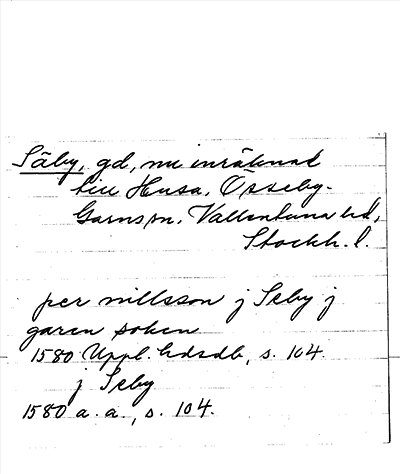 Säby, gd, nu inräknad
till Husa, Össeby-
Garns sn, Vallentuna hd,
Stockh. l.
per nillsson j Seby j
garen soken
1580 Uppl. hdrdb, s. 104.
j Seby
1580 a. a., s. 104.